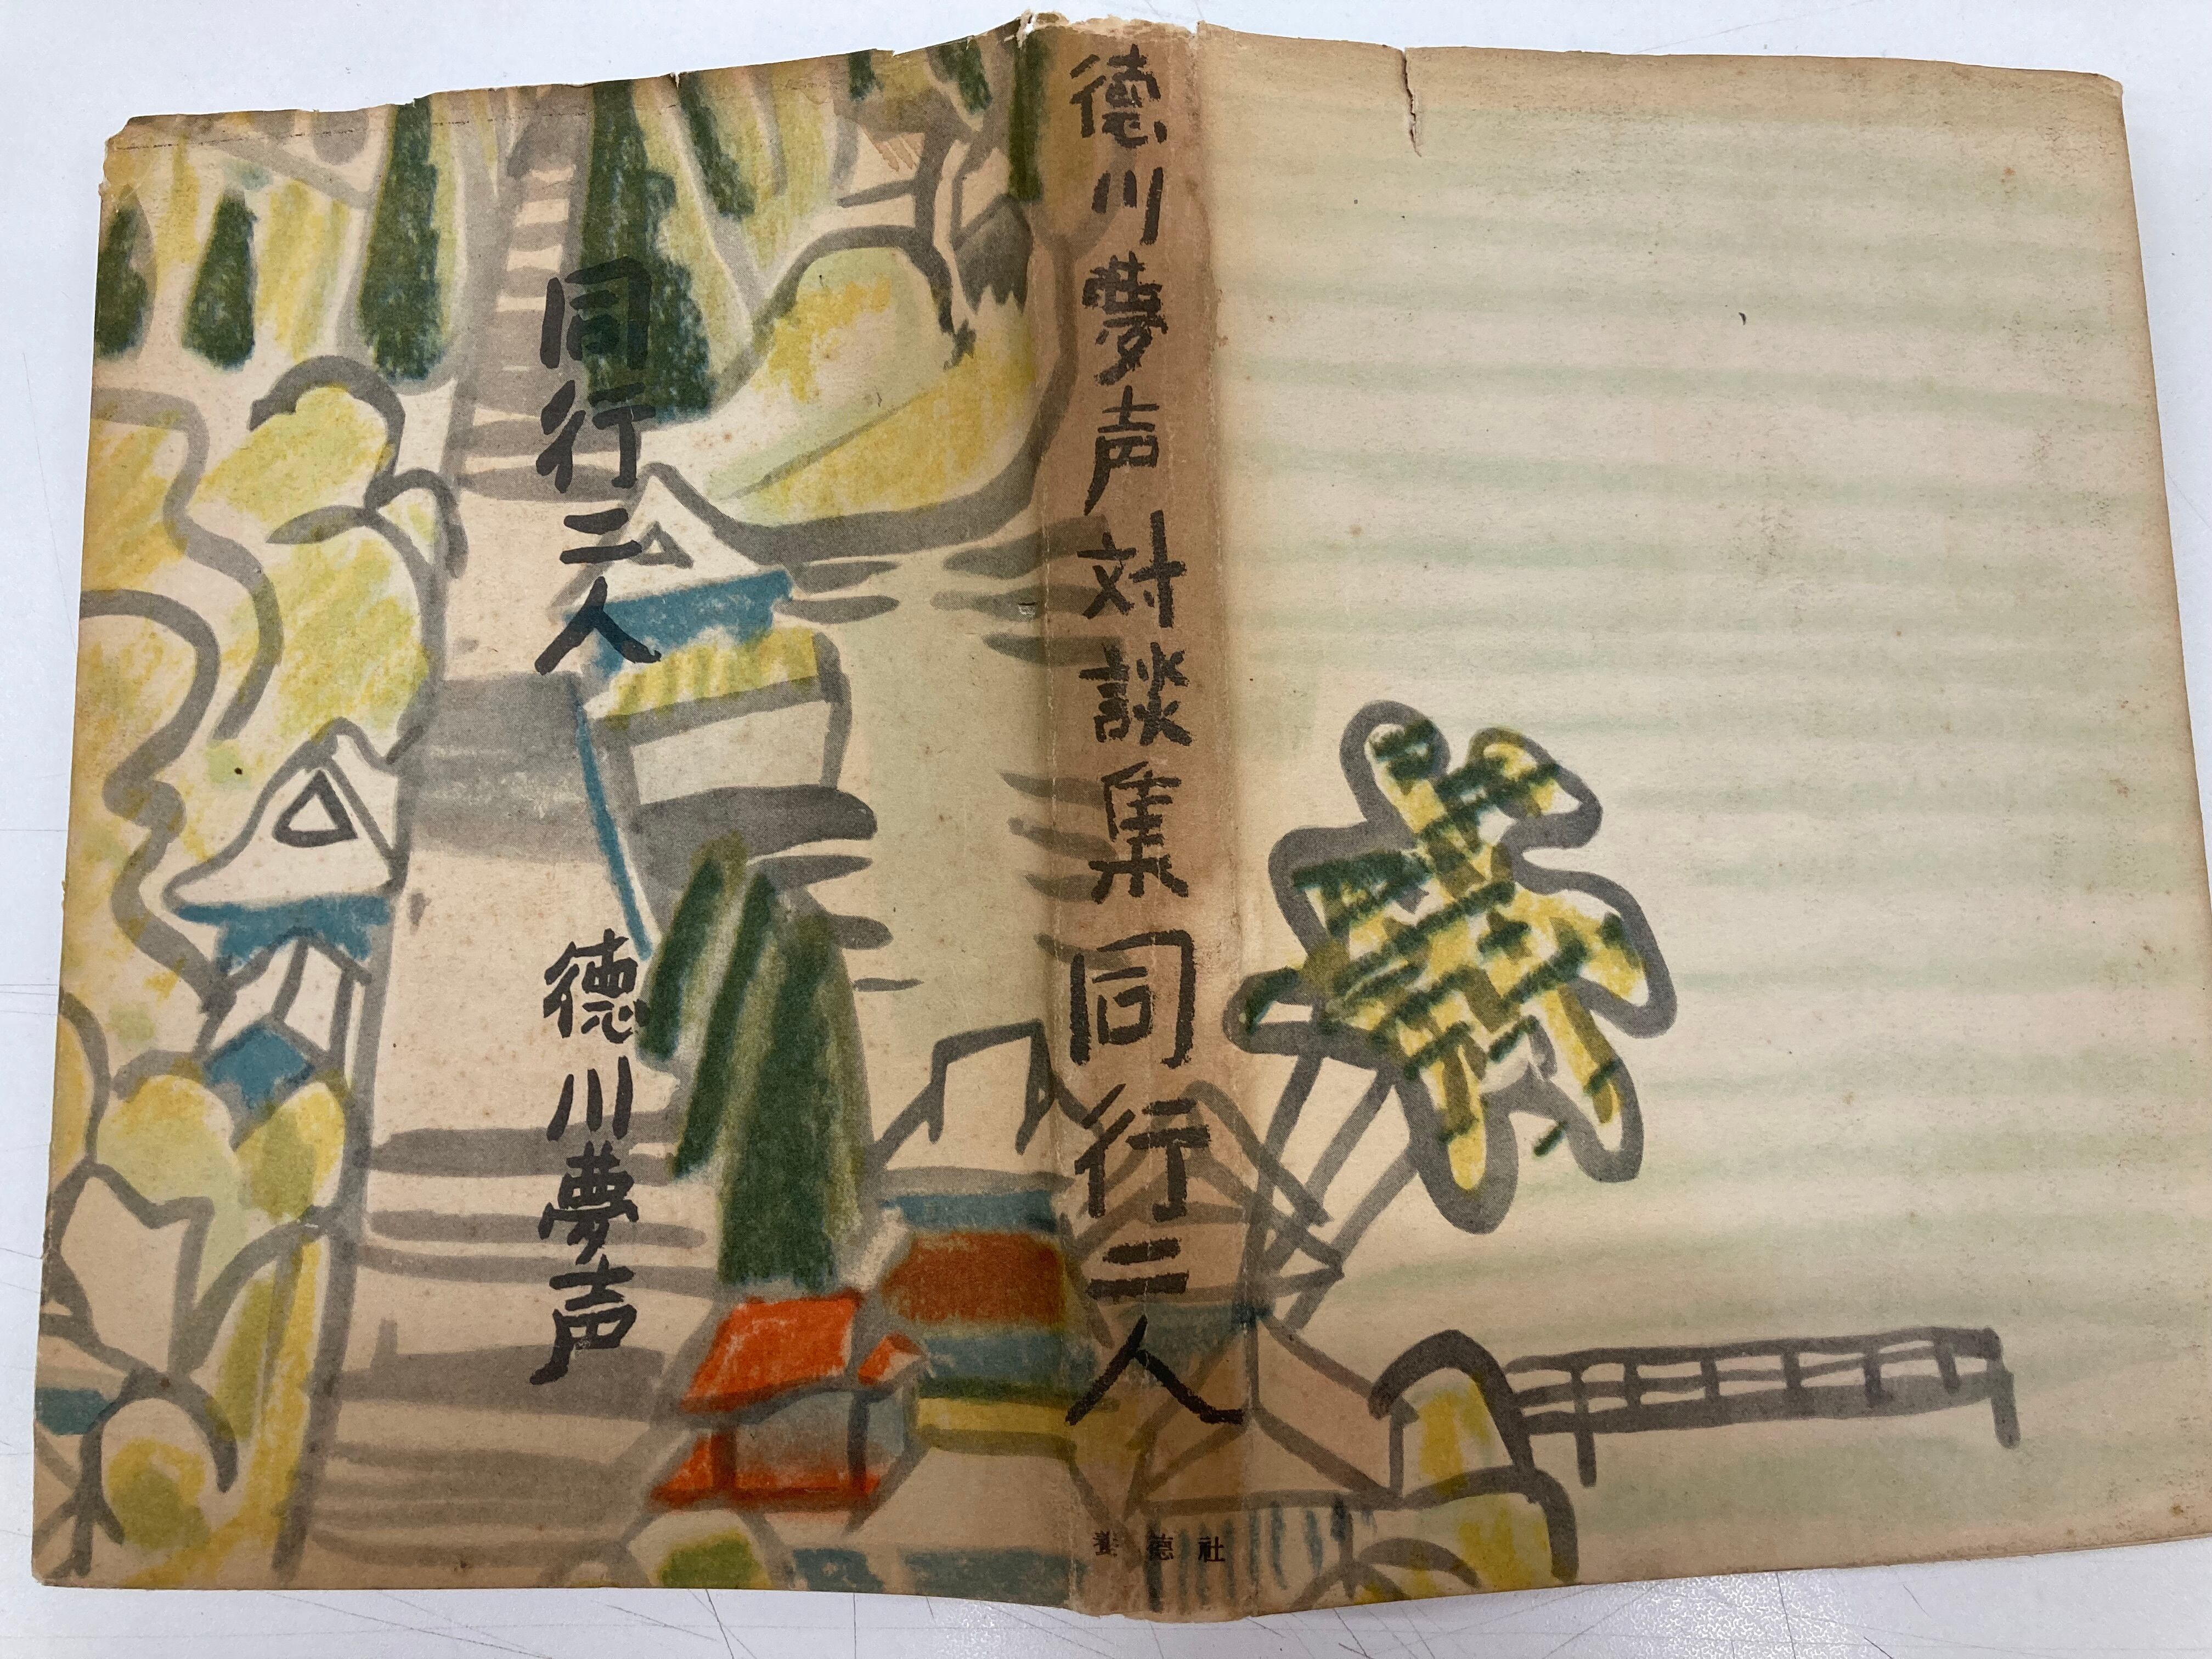 同行二人
徳川夢声
徳川夢声対談集 同行二人
養徳社